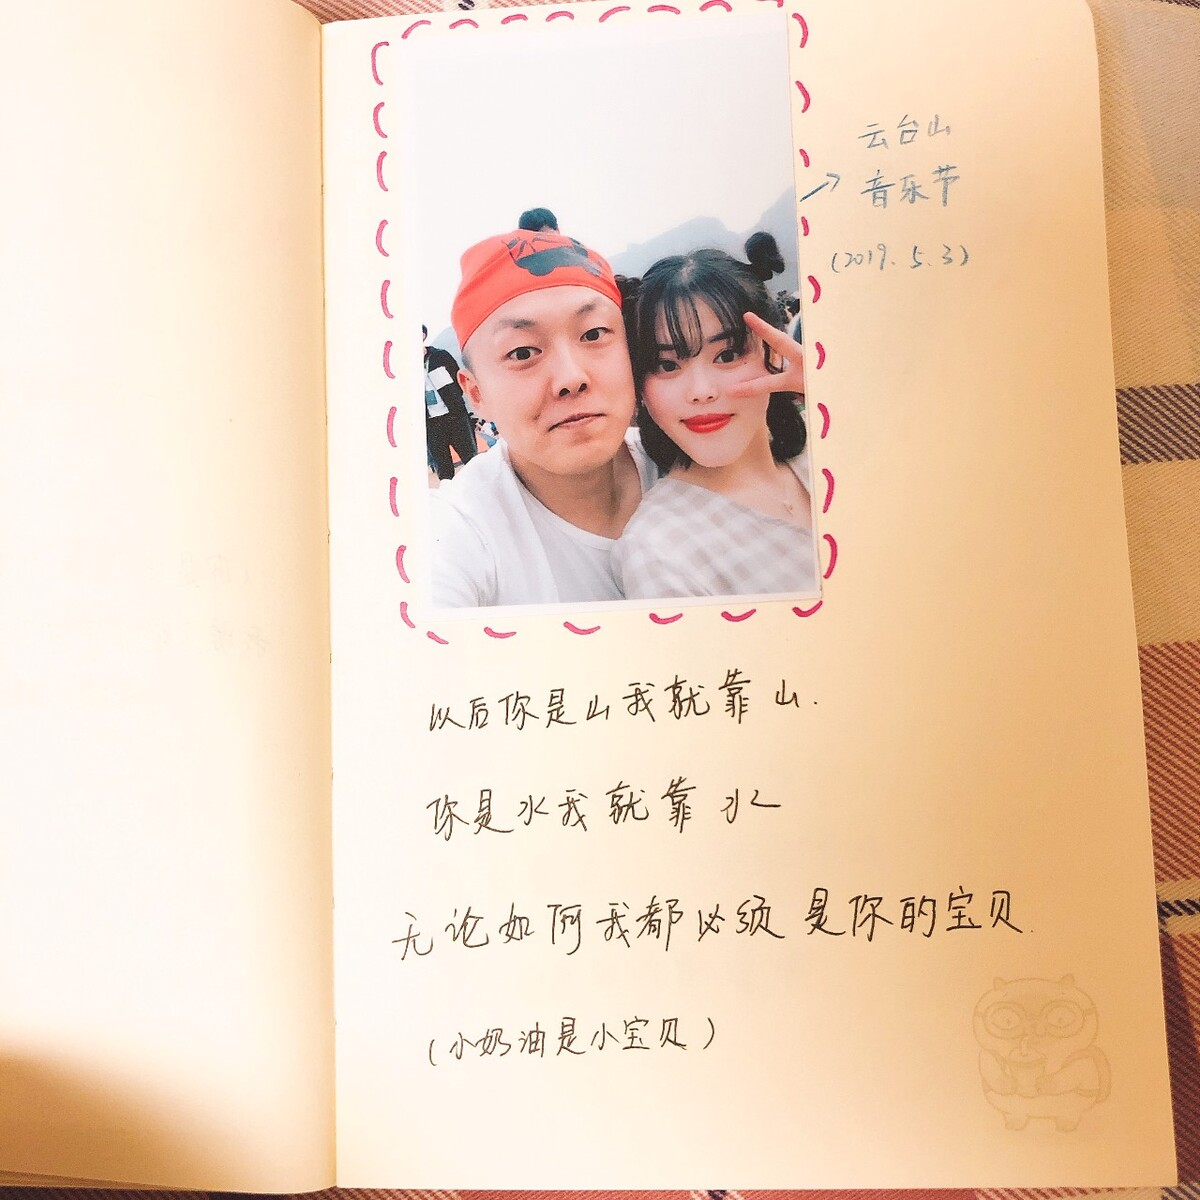 云台山
音乐节
(2019.5.3)
以后你是山我就靠山.
你是水我就靠水
无论如何我都必须是你的宝贝.
(小奶油是小宝贝)